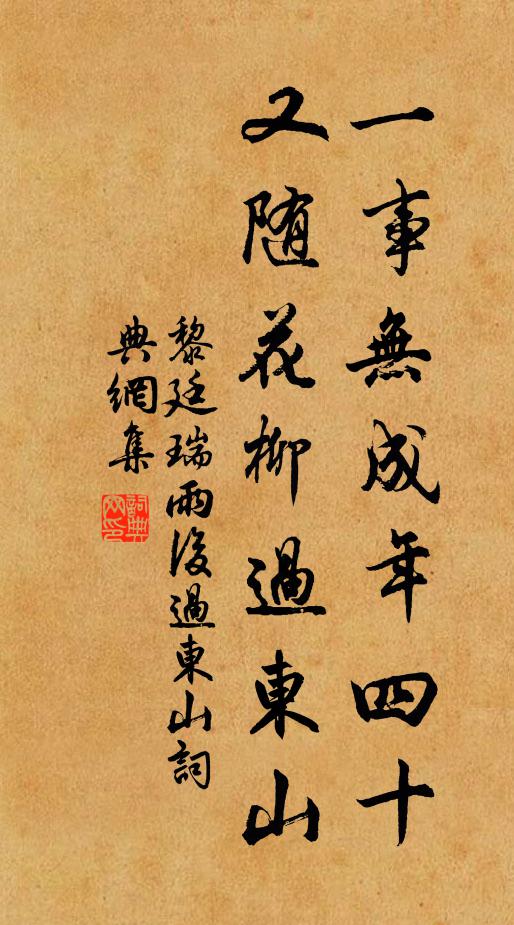 一事無成年四十
又随花柳過東山
黎廷瑞雨後過東山詞
典網集
詞典網印